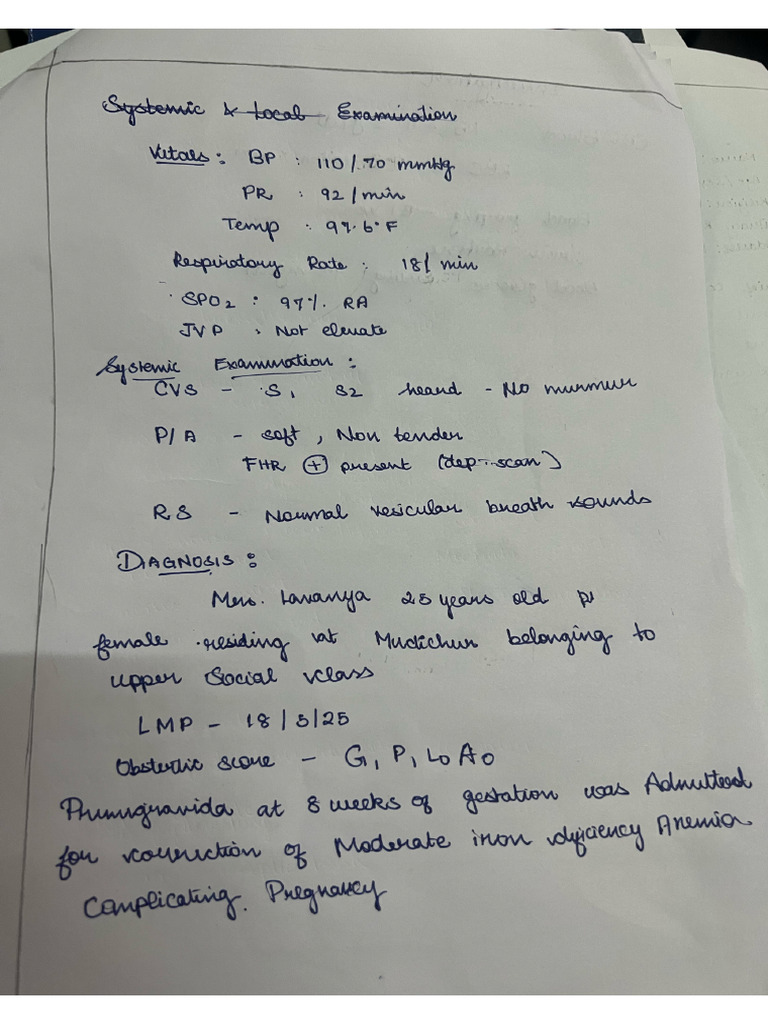 Systemic & Local Examination
Vitals : BP : 110/70 mmHg
PR : 92/min
Temp : 97.6°F
Respiratory Rate : 18/min
SPO2 : 97% RA
JVP : Not elevate
Systemic Examination :
CVS - S1 S2 heard - No murmur
P/A - soft, Non tender
FHR + present (dep-scan)
RS - Normal vesicular breath sounds
DIAGNOSIS :
Mrs. Lavanya 25 years old
female residing at Mudichur belonging to
upper Social class
LMP - 18/5/25
Obstetric score - G1 P1 L0 A0
Primigravida at 8 weeks of gestation was Admitted
for correction of Moderate iron dificiency Anemia
Complicating. Pregnancy